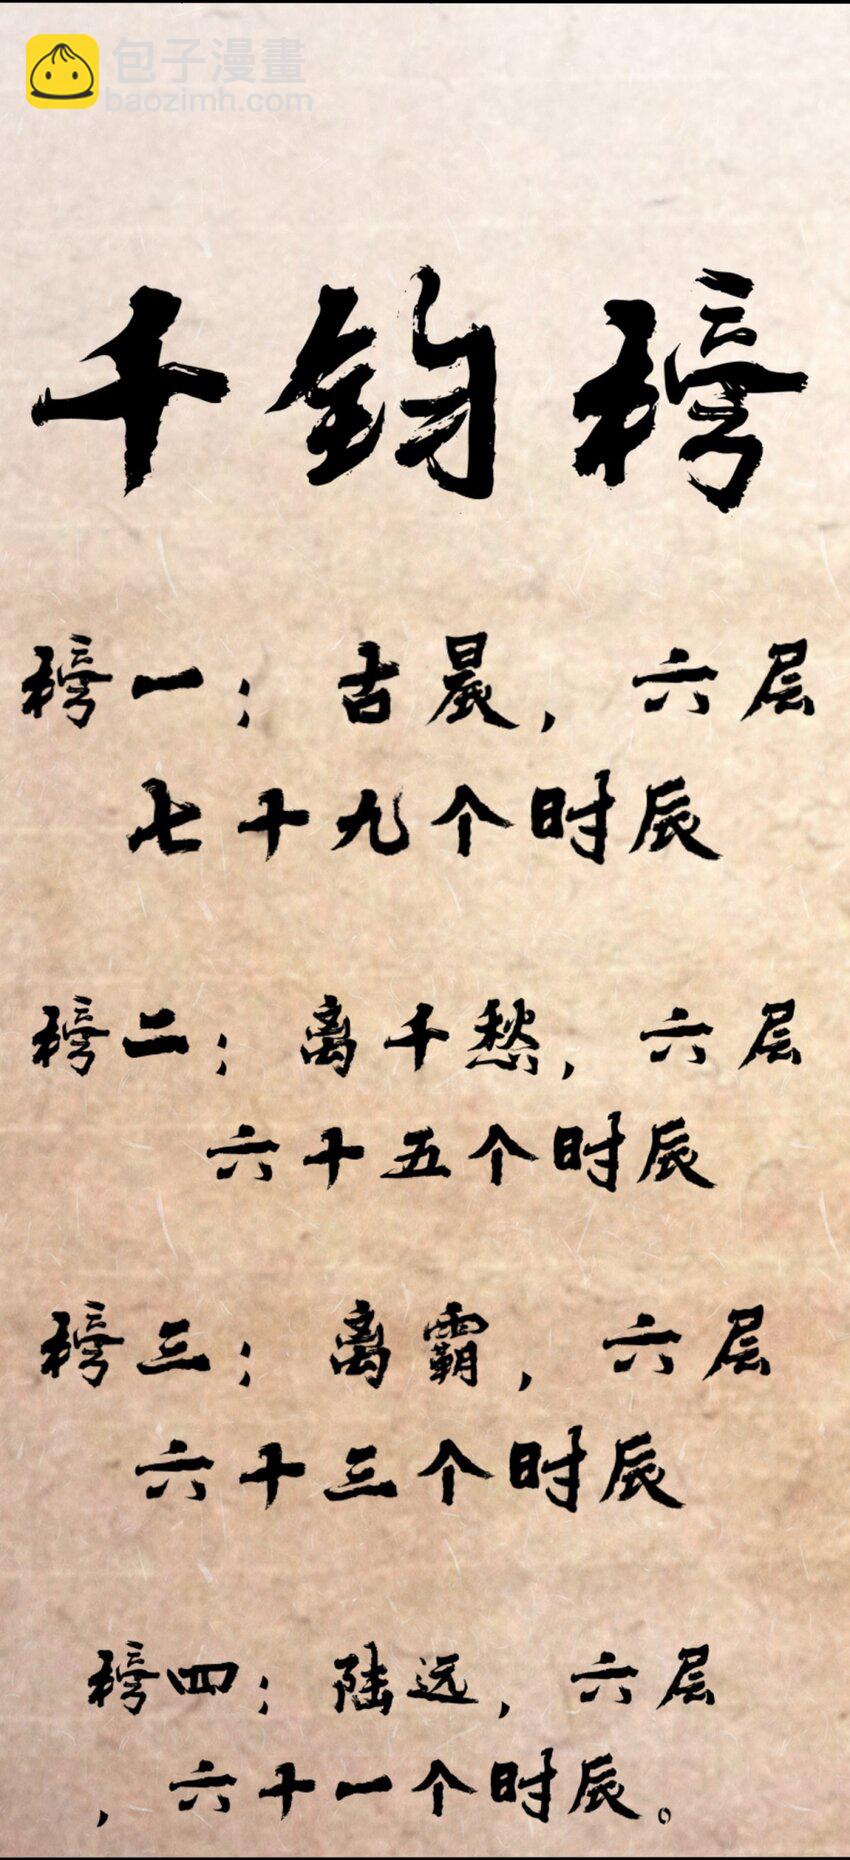 包子漫畫
baozimh.com
千钧榜
榜一；古晨，六层
七十九个时辰
榜二；离千愁，六层
六十五个时辰
榜三；离霸，六层
六十三个时辰
榜四；陆远，六层
，六十一个时辰。